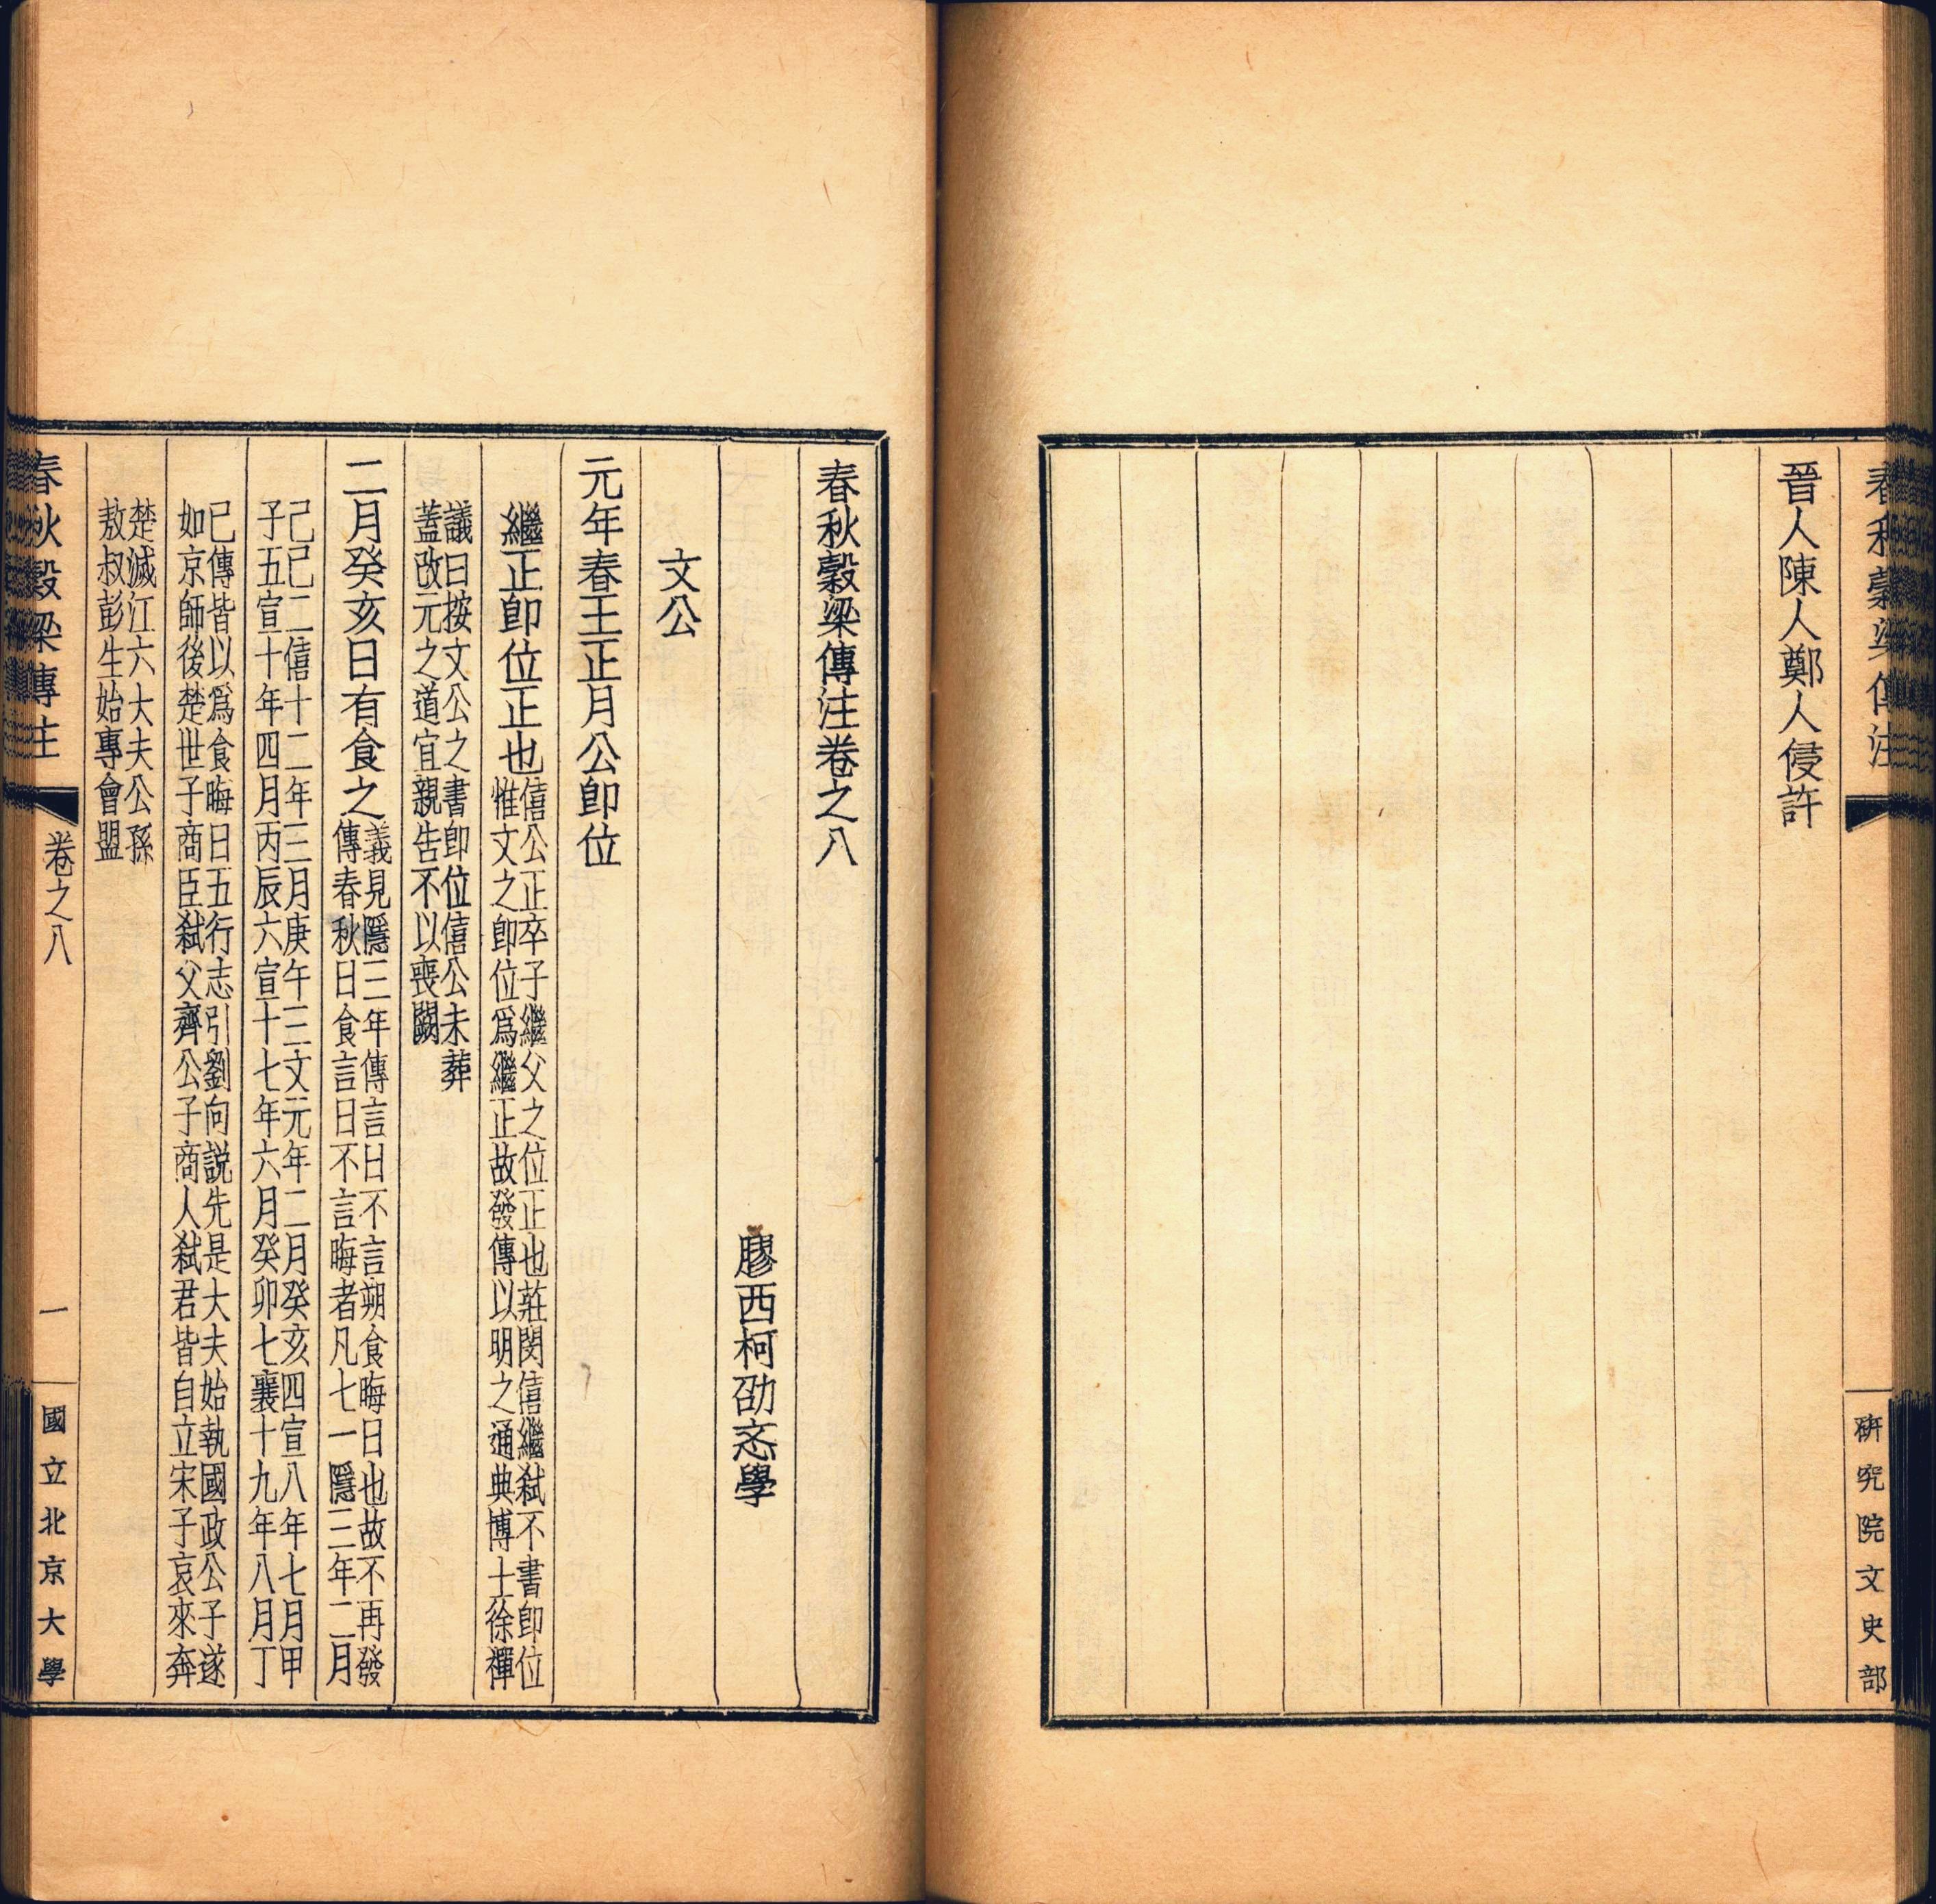 春秋穀梁傳注
研究院文史部
晉人陳人鄭人侵許
春秋穀梁傳注卷之八
膠西柯劭忞學
文公
元年春王正月公即位
繼正即位正也
僖公正卒子繼父之位正也莊閔僖繼弒不書即位
惟文之即位爲繼正故發傳以明之通典博士徐禪
議曰按文公之書即位僖公未葬
蓋改元之道宜親告不以喪闕
二月癸亥日有食之
義見隱三年傳言日不言朔食晦日也故不再發
傳春秋日食言日不言晦者凡七一隱三年二月
己巳二僖十二年三月庚午三文元年二月癸亥四宣八年七月甲
子五宣十年四月丙辰六宣十七年六月癸卯七襄十九年八月丁
巳傳皆以爲食晦日五行志引劉向説先是大夫始執國政公子遂
如京師後楚世子商臣弒父齊公子商人弒君皆自立宋子哀來奔
楚滅江六大夫公孫
敖叔彭生始專會盟
春秋穀梁傳注
卷之八
一
國立北京大學